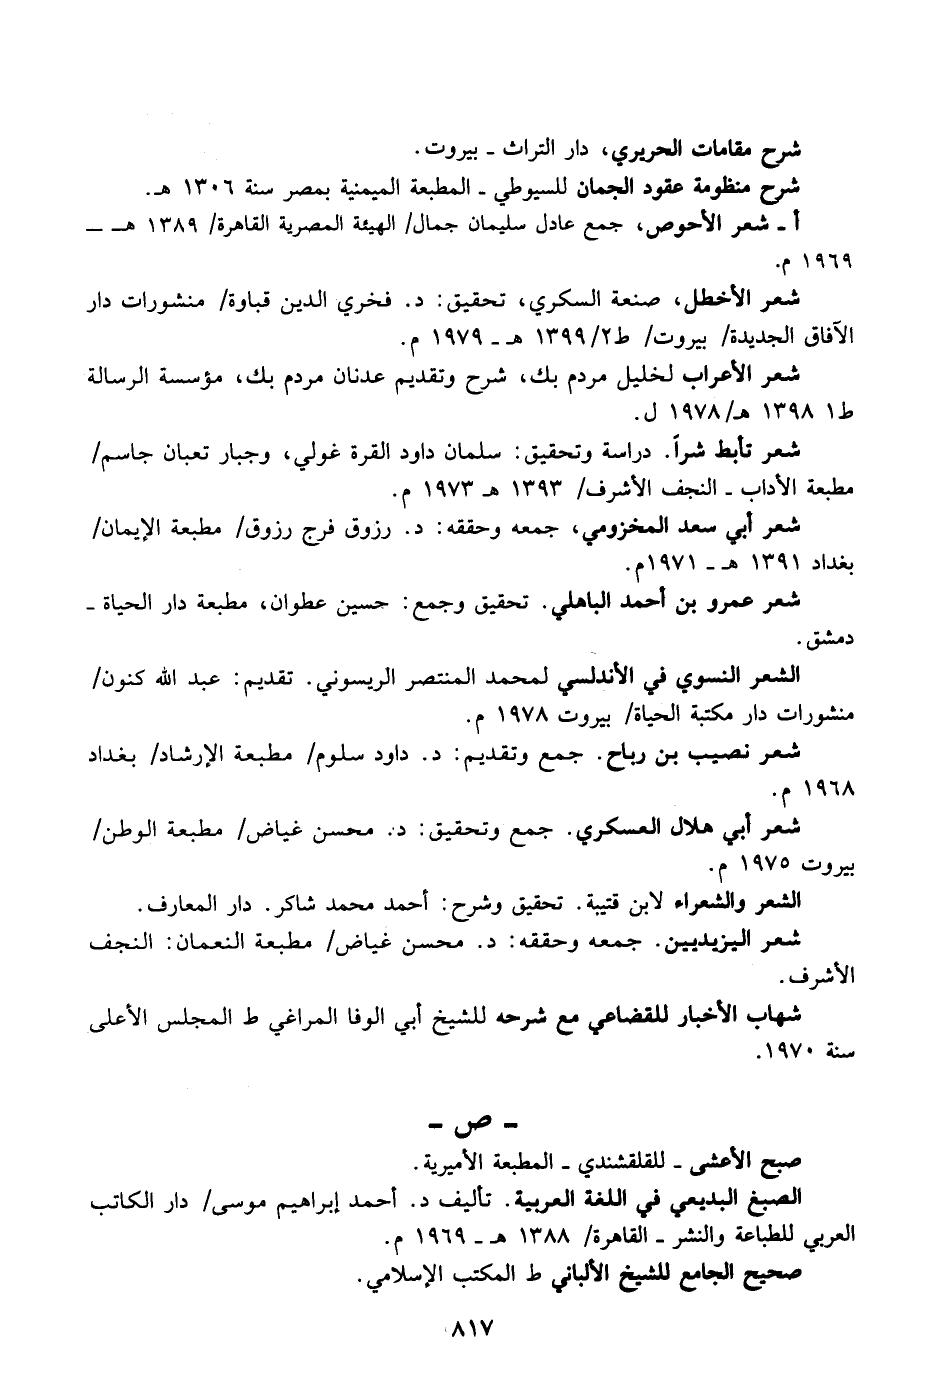 شرح مقامات الحريري، دار التراث ـ بيروت.
شرح منظومة عقود الجمان للسيوطي ـ المطبعة الميمنية بمصر سنة ١٣٠٦ هـ.
أ ـ شعر الأحوص، جمع عادل سليمان جمال/ الهيئة المصرية القاهرة/ ١٣٨٩ هـ ـ
١٩٦٩ م.
شعر الأخطل، صنعة السكري، تحقيق: د. فخري الدين قباوة/ منشورات دار
الآفاق الجديدة/ بيروت/ ط٢/ ١٣٩٩ هـ ـ ١٩٧٩ م.
شعر الأعراب لخليل مردم بك، شرح وتقديم عدنان مردم بك، مؤسسة الرسالة
ط١ ١٣٩٨ هـ/١٩٧٨ ل.
شعر تأبط شراً. دراسة وتحقيق: سلمان داود القرة غولي، وجبار تعبان جاسم/
مطبعة الأداب ـ النجف الأشرف/ ١٣٩٣ هـ ١٩٧٣ م.
شعر أبي سعد المخزومي، جمعه وحققه: د. رزوق فرج رزوق/ مطبعة الإيمان/
بغداد ١٣٩١ هـ ـ ١٩٧١م.
شعر عمرو بن أحمد الباهلي. تحقيق وجمع: حسين عطوان، مطبعة دار الحياة ـ
دمشق.
الشعر النسوي في الأندلسي لمحمد المنتصر الريسوني. تقديم: عبد الله كنون/
منشورات دار مكتبة الحياة/ بيروت ١٩٧٨ م.
شعر نصيب بن رباح. جمع وتقديم: د. داود سلوم/ مطبعة الإرشاد/ بغداد
١٩٦٨ م.
شعر أبي هلال العسكري. جمع وتحقيق: د. محسن غياض/ مطبعة الوطن/
بيروت ١٩٧٥ م.
الشعر والشعراء لابن قتيبة. تحقيق وشرح: أحمد محمد شاكر. دار المعارف.
شعر اليزيديين. جمعه وحققه: د. محسن غياض/ مطبعة النعمان: النجف
الأشرف.
شهاب الأخبار للقضاعي مع شرحه للشيخ أبي الوفا المراغي ط المجلس الأعلى
سنة ١٩٧٠.
ـ ص ـ
صبح الأعشى ـ للقلقشندي ـ المطبعة الأميرية.
الصبغ البديعي في اللغة العربية. تأليف د. أحمد إبراهيم موسى/ دار الكاتب
العربي للطباعة والنشر ـ القاهرة/ ١٣٨٨ هـ ـ ١٩٦٩ م.
صحيح الجامع للشيخ الألباني ط المكتب الإسلامي.
٨١٧